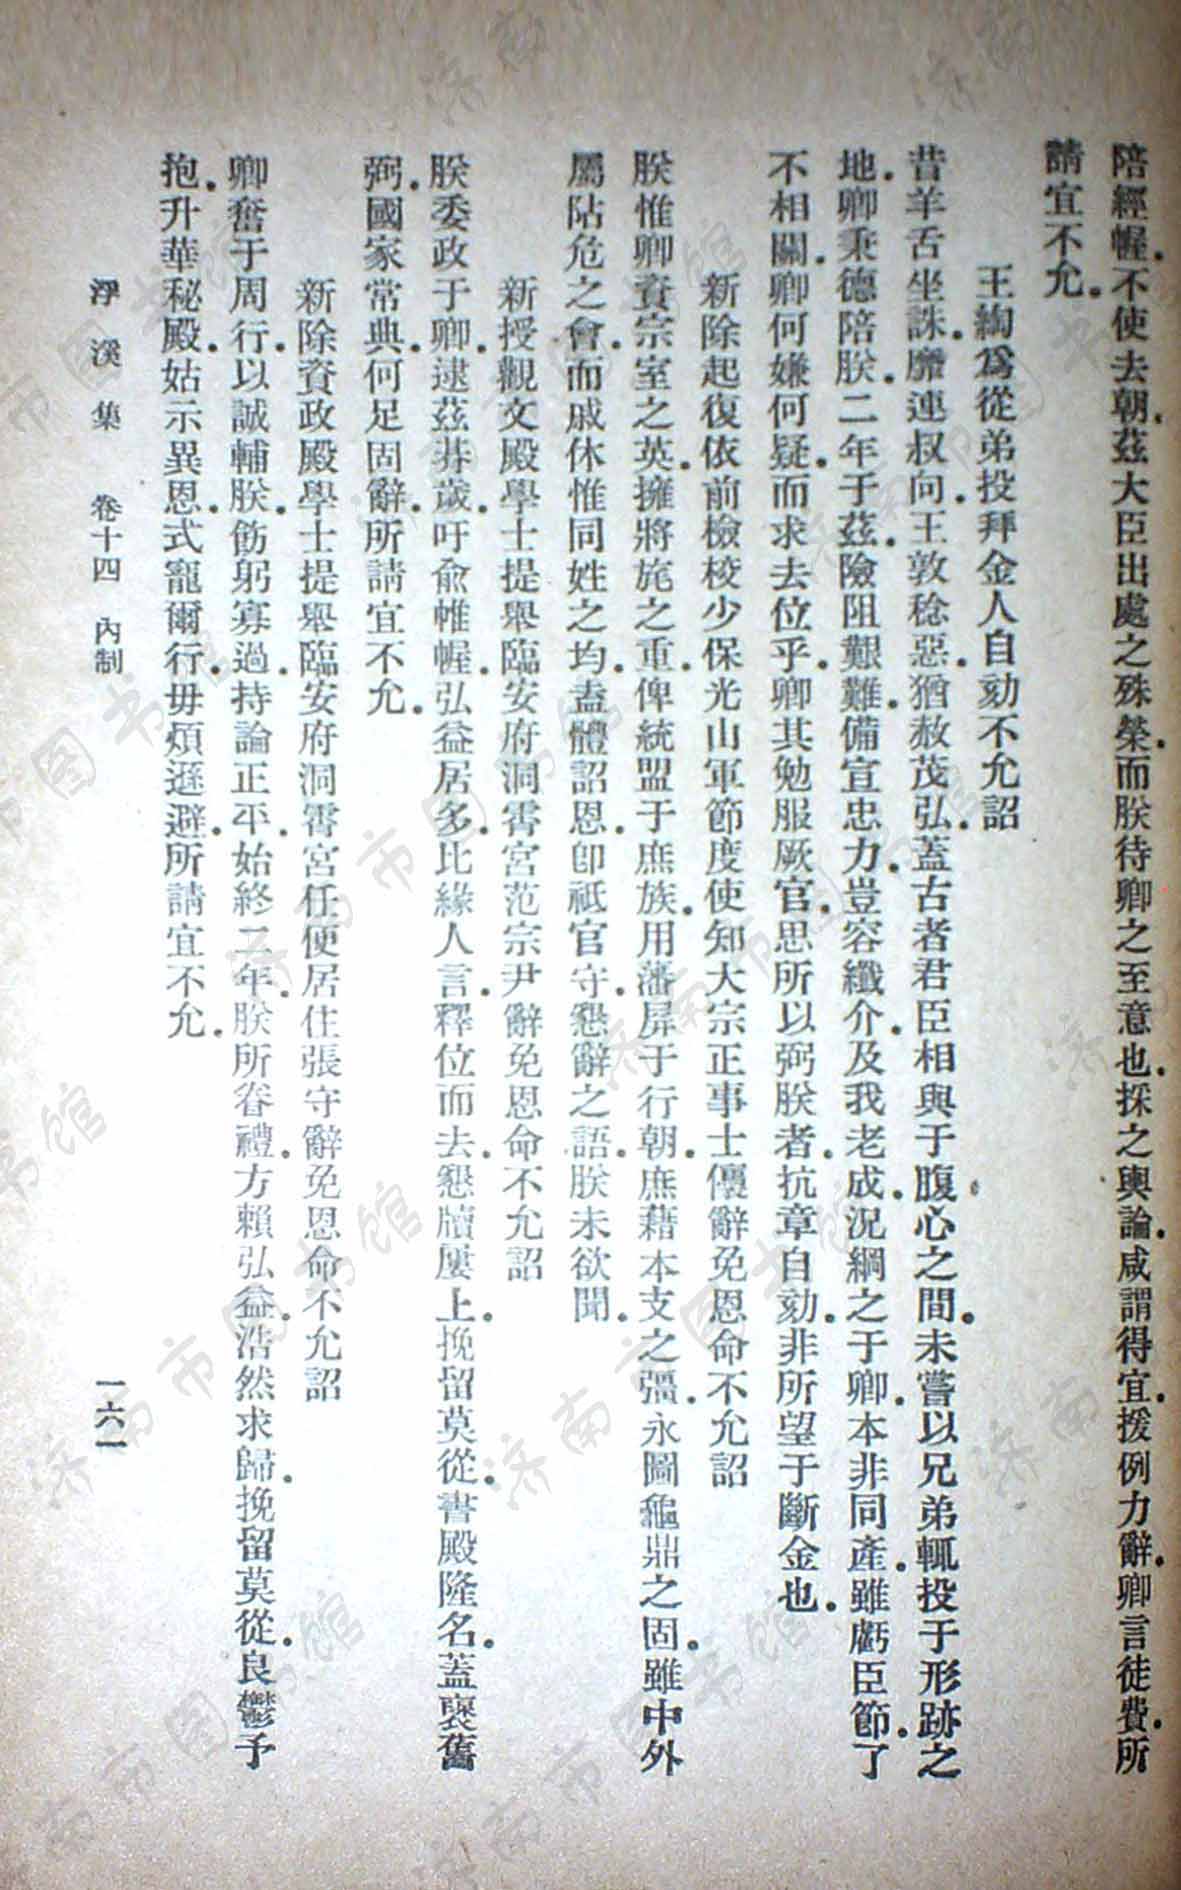 陪經幄。不使去朝。茲大臣出處之殊榮。而朕待卿之至意也。採之輿論。咸謂得宜。援例力辭。卿言徒費。所
請宜不允。
王綯爲從弟投拜金人自劾不允詔
昔羊舌坐誅。靡連叔向。王敦稔惡。猶赦茂弘。蓋古者君臣相與于腹心之間。未嘗以兄弟輒投于形跡之
地。卿秉德陪朕。二年于茲。險阻艱難。備宣忠力。豈容纖介。及我老成。況綱之于卿。本非同產。雖虧臣節。了
不相關。卿何嫌何疑。而求去位乎。卿其勉服厥官。思所以弼朕者。抗章自劾。非所望于斷金也。
新除起復依前檢校少保光山軍節度使知大宗正事士㒟辭免恩命不允詔
朕惟卿資宗室之英。擁將旄之重。俾統盟于庶族。用藩屏于行朝。庶藉本支之彊。永圖龜鼎之固。雖中外
屬阽危之會。而戚休惟同姓之均。盍體詔恩。卽祗官守。懇辭之語。朕未欲聞。
新授觀文殿學士提舉臨安府洞霄宮范宗尹辭免恩命不允詔
朕委政于卿。逮茲朞歲。吁俞帷幄。弘益居多。比緣人言。釋位而去。懇牘屢上。挽留莫從。書殿隆名。蓋褒舊
弼。國家常典。何足固辭。所請宜不允。
新除資政殿學士提舉臨安府洞霄宮任便居住張守辭免恩命不允詔
卿奮于周行。以誠輔朕。飭躬寡過。持論正平。始終二年。朕所眷禮。方賴弘益。浩然求歸。挽留莫從。良鬱予
抱。升華秘殿。姑示異恩。式寵爾行。毋煩遜避。所請宜不允。
浮溪集 卷十四 內制
一六一
济南市图书馆